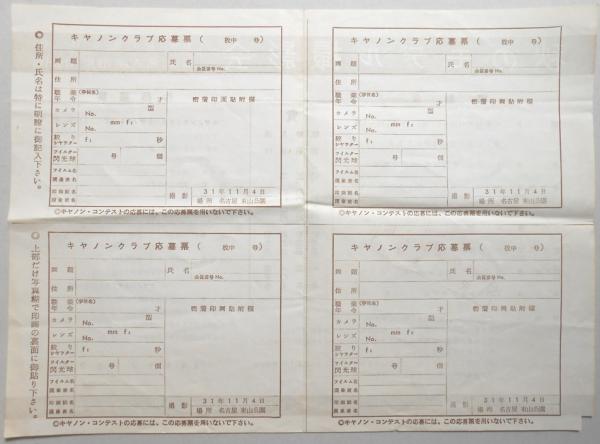 ◎住所・氏名は特に明瞭に御記入下さい。
◎上部だけ写真糊で印画の裏面に御貼り下さい。
キヤノンクラブ応募票（ 枚中 号）
画題
氏名
会員番号No.
住所
職業(学校名)
年令 才
カメラ 型
No.
レンズ mm f:
No.
絞り
シヤツター f: 秒
フイルター
閃光球 号 個
フイルム名
現像液名
印画紙名
現像液名
密着印画貼附欄
撮影 31年11月4日
場所 名古屋 東山公園
◎キヤノン・コンテストの応募には、この応募票を用いないで下さい。
キヤノンクラブ応募票（ 枚中 号）
画題
氏名
会員番号No.
住所
職業(学校名)
年令 才
カメラ 型
No.
レンズ mm f:
No.
絞り
シヤツター f: 秒
フイルター
閃光球 号 個
フイルム名
現像液名
印画紙名
現像液名
密着印画貼附欄
撮影 31年11月4日
場所 名古屋 東山公園
◎キヤノン・コンテストの応募には、この応募票を用いないで下さい。
キヤノンクラブ応募票（ 枚中 号）
画題
氏名
会員番号No.
住所
職業(学校名)
年令 才
カメラ 型
No.
レンズ mm f:
No.
絞り
シヤツター f: 秒
フイルター
閃光球 号 個
フイルム名
現像液名
印画紙名
現像液名
密着印画貼附欄
撮影 31年11月4日
場所 名古屋 東山公園
◎キヤノン・コンテストの応募には、この応募票を用いないで下さい。
キヤノンクラブ応募票（ 枚中 号）
画題
氏名
会員番号No.
住所
職業(学校名)
年令 才
カメラ 型
No.
レンズ mm f:
No.
絞り
シヤツター f: 秒
フイルター
閃光球 号 個
フイルム名
現像液名
印画紙名
現像液名
密着印画貼附欄
撮影 31年11月4日
場所 名古屋 東山公園
◎キヤノン・コンテストの応募には、この応募票を用いないで下さい。